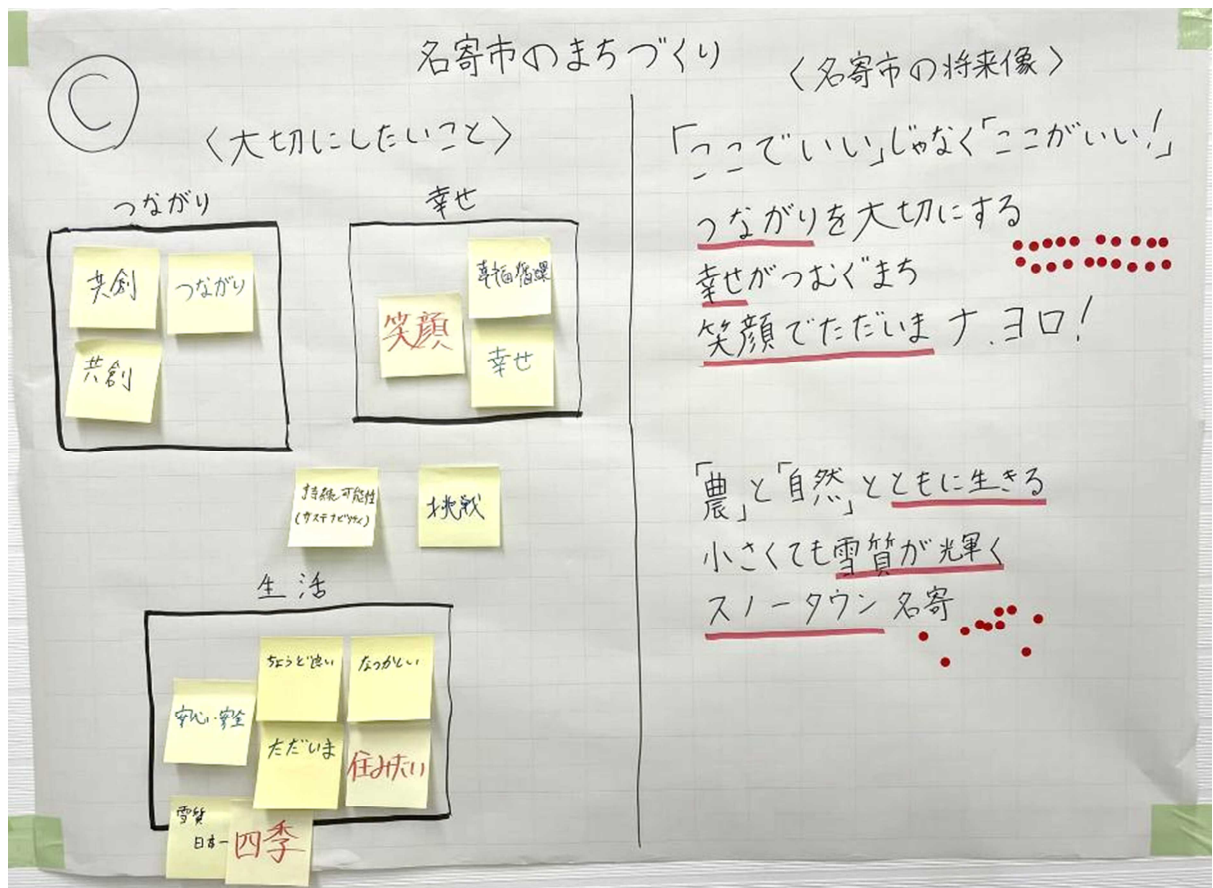 名寄市のまちづくり
C
〈大切にしたいこと〉
つながり
共創
つながり
共創
幸せ
幸福循環
笑顔
幸せ
持続可能性
(サステナビリティ)
挑戦
生活
ちょうど良い
なつかしい
安心・安全
ただいま
住みたい
雪質
日本一
四季
〈名寄市の将来像〉
「ここでいい」じゃなく「ここがいい!」
つながりを大切にする
幸せがつむぐまち
笑顔でただいま ナ.ヨロ!
「農」と「自然」とともに生きる
小さくても雪質が光輝く
スノータウン 名寄